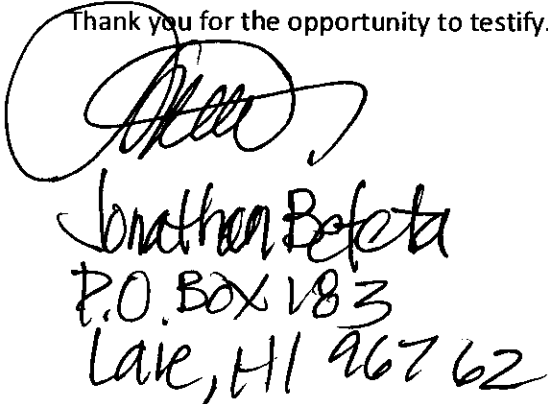 Thank you for the opportunity to testify.
Jonathan
P.O. Box 183
Laie, HI 96762